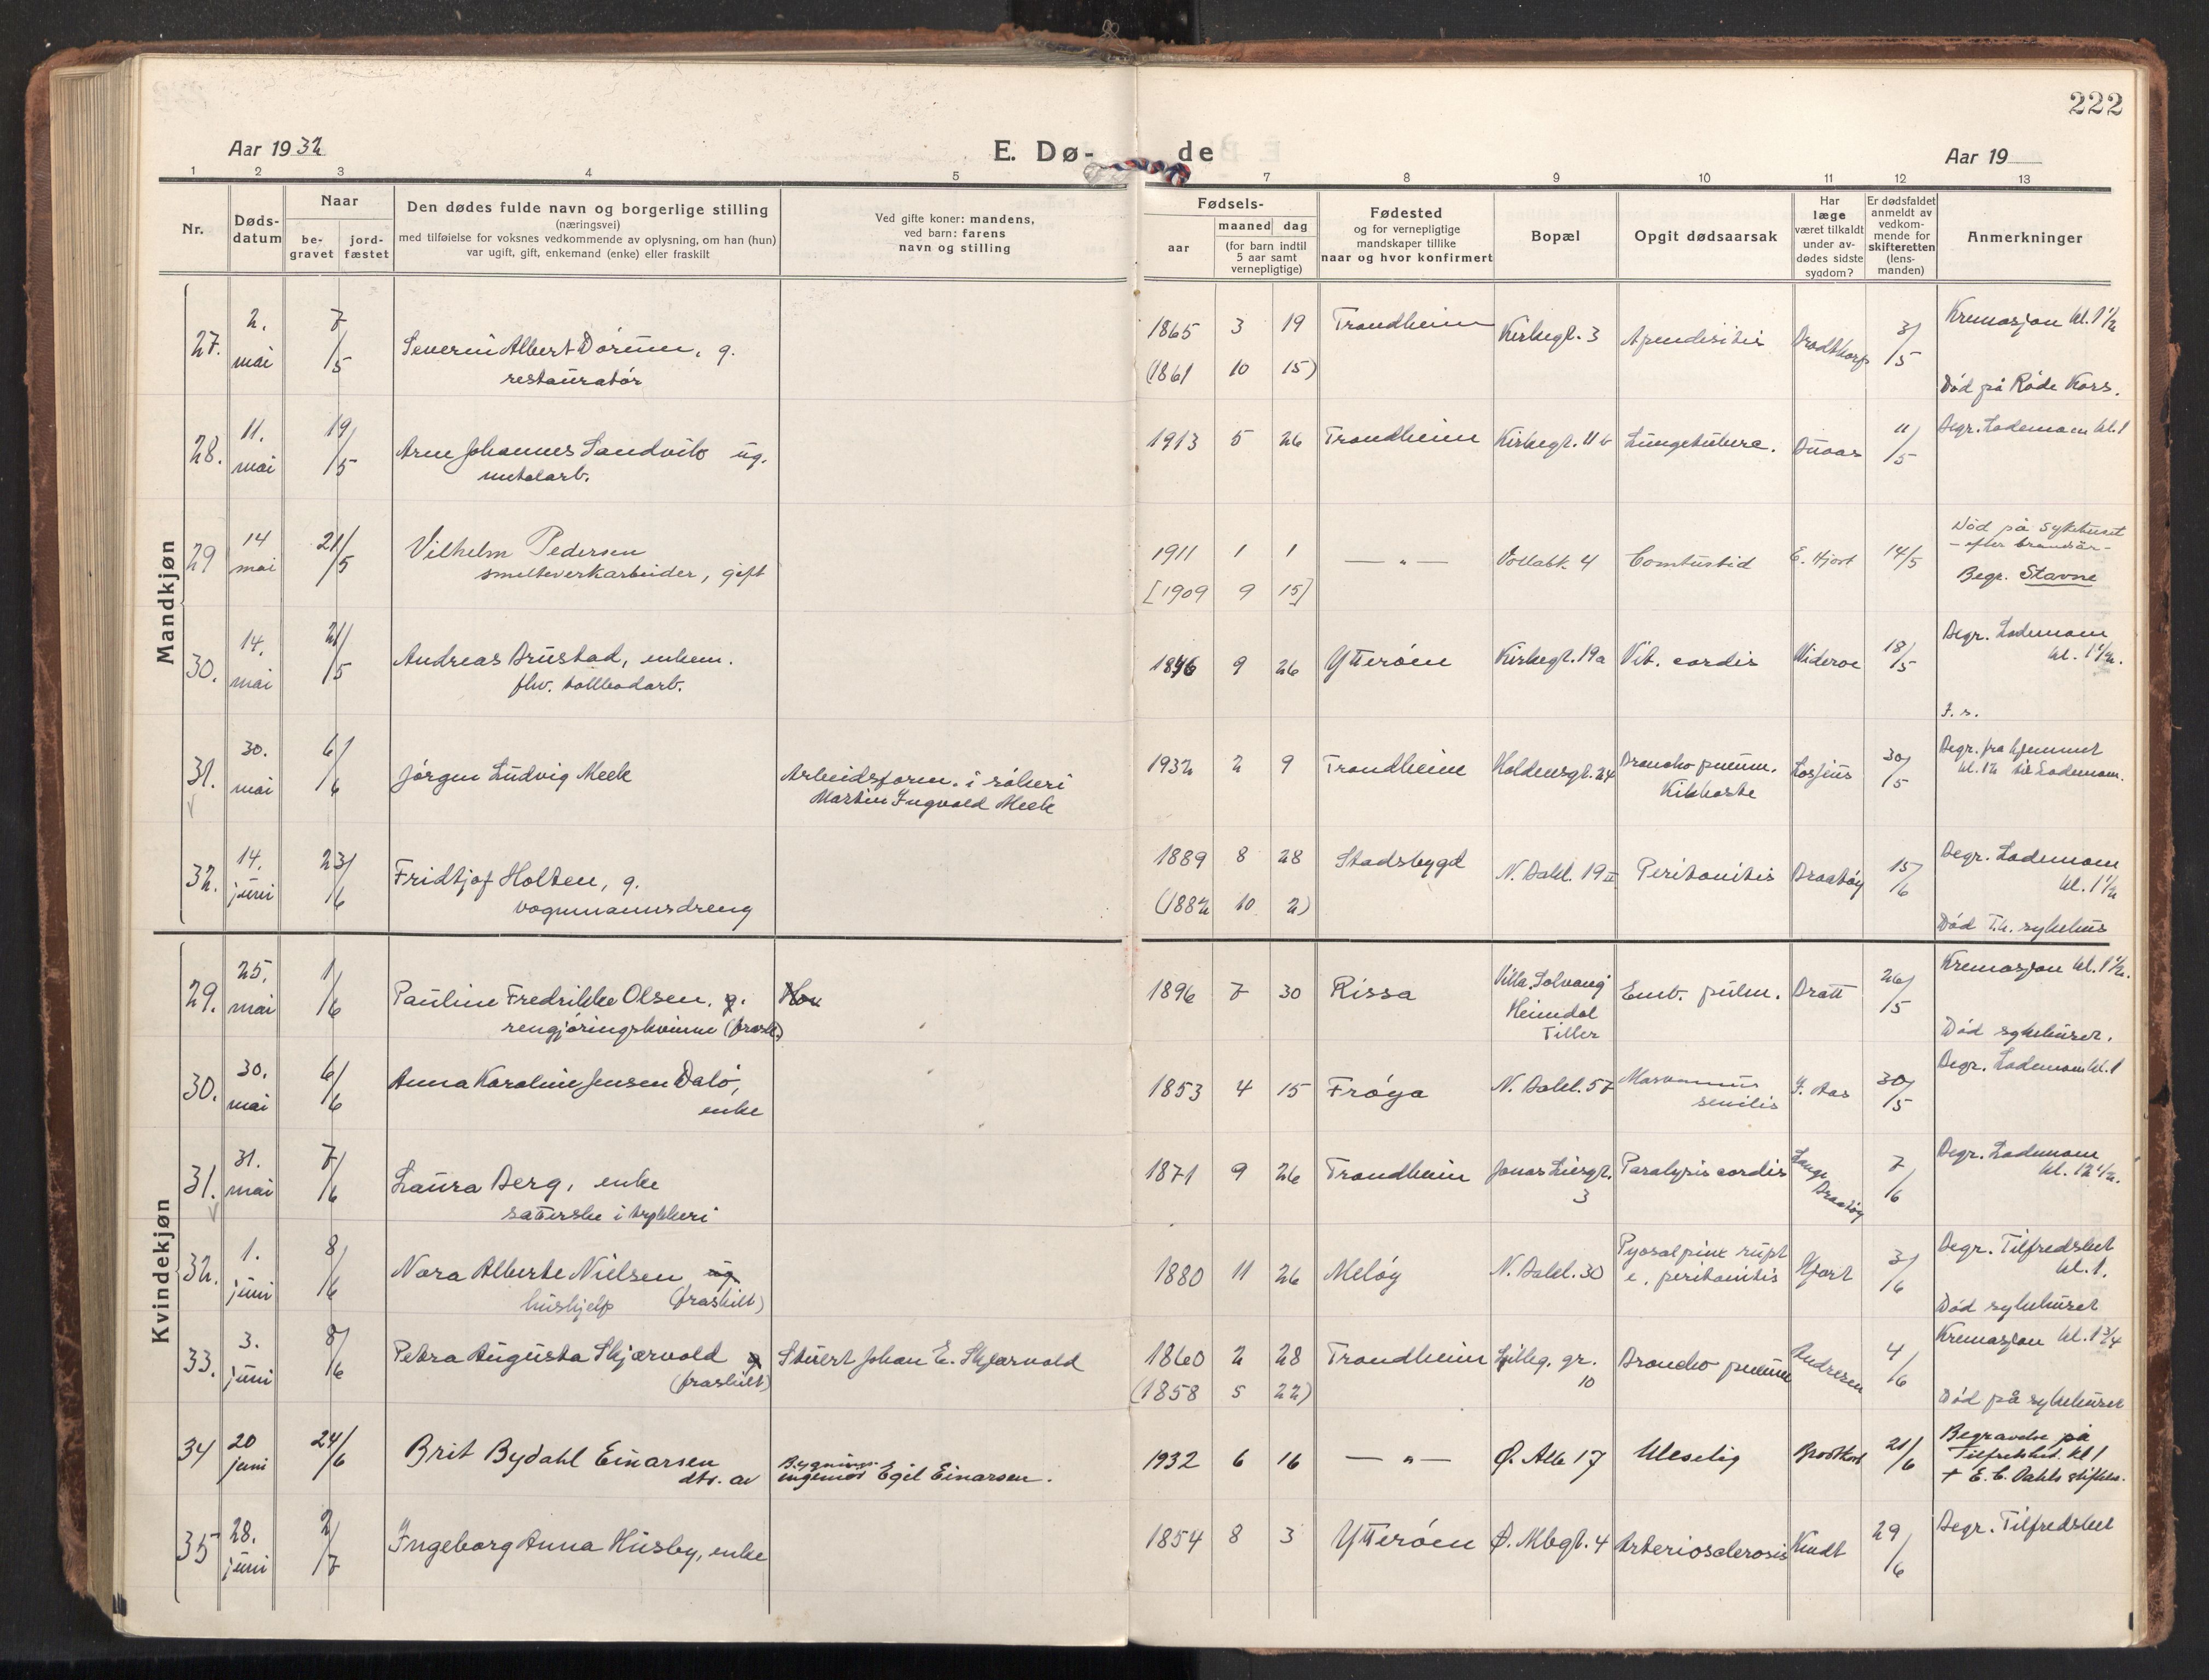 222
Aar 1932
E. Dø-
de
Aar 19
1 2 3 4 5 7 8 9 10 11 12 13
Nr.
Døds-
datum
Naar
be-
gravet
jord-
fæstet
Den dødes fulde navn og borgerlige stilling
(næringsvei)
med tilføielse for voksnes vedkommende av oplysning, om han (hun)
var ugift, gift, enkemand (enke) eller fraskilt
Ved gifte koner: mandens,
ved barn: farens
navn og stilling
Fødsels-
aar
maaned dag
(for barn indtil
5 aar samt
vernepligtige)
Fødested
og for vernepligtige
mandskaper tillike
naar og hvor konfirmert
Bopæl
Opgit dødsaarsak
Har
læge
været tilkaldt
under av-
dødes sidste
sygdom?
Er dødsfaldet
anmeldt av
vedkom-
mende for
skifteretten
(lens-
manden)
Anmerkninger
Mandkjøn
27. 2. mai 7/5 Severin Albert Dørum, g. 1865 3 19 Trondheim Kirkegt. 3 Apendisitis 3/5 Kremasjon kl. 1 1/2
restauratør (1861 10 15) Død på Røde Kors.
28. 11. mai 19/5 Arne Johannes Sandvik ug. 1913 5 26 Trondheim Kirkegt. 11b Lungetuberc. 11/5 Begr. Lademoen kl. 1
metalarb.
29 14 mai 21/5 Vilhelm Pedersen 1911 1 1 — " — Vollabk. 4 E. Hjort 14/5 Død på sykehuset
smelteverkarbeider, gift [1909 9 15] - efter brandsår -
Begr. Stavne
30. 14. mai 21/5 Andreas Brustad, enkem. 1846 9 26 Ytterøen Kirkegt. 19a Vit. cordis Widerøe 18/5 Begr. Lademoen
fhv. tollbodarb. kl. 1 1/2.
31. 30. mai 6/6 Jørgen Ludvig Meek Arbeidsform. i røkeri 1932 2 9 Trondheim Holdensgt. 24 Broncho pneum. 30/5 Begr. fra hjemmet
Martin Ingvald Meek Kikhoste kl. 12 til Lademoen.
32. 14. juni 23/6 Fridtjof Holten, g. 1889 8 28 Stadsbygd N. Bakl. 19 II Peritonitis Braatøy 15/6 Begr. Lademoen
vognmannsdreng (1882 10 2) kl. 1 1/2
Død T.h. sykehus
Kvindekjøn
29. 25. mai 1/6 Pauline Fredrikke Olsen, g. 1896 7 30 Rissa Villa Solvang Emb. pulm. Bratt 26/5 Kremasjon kl. 1 1/2.
rengjøringskvinne (frask.) Heimdal
Tiller Død sykehuset.
30. 30. mai 6/6 Anna Karoline Jensen Dalø, 1853 4 15 Frøya N. Bakl. 57 Marasmus 30/5 Begr. Lademoen kl. 1
enke senilis
31. 31. mai 7/6 Laura Berg, enke 1871 9 26 Trondheim Jonas Liesgt. Paralysis cordis Lange 7/6 Begr. Lademoen
sætterske i trykkeri 3 Braatøy kl. 12 1/2.
32. 1. juni 8/6 Nora Alberte Nielsen, ug 1880 11 26 Meløy N. Bakl. 30 Pyosalpinx rupt Hjort 3/6 Begr. Tilfredshet
hushjelp (fraskilt) c. peritonitis kl. 1.
Død sykehuset
33. 3. juni 8/6 Petra Augusta Skjærvold g Stuert Johan E. Skjærvold 1860 2 28 Trondheim Lilleg. gr. Broncho pneum Andresen 4/6 Kremasjon kl. 1 3/4
(fraskilt) (1858 5 22) 10 Død på sykehuset
34 20 juni 24/6 Brit Bydahl Einarsen Bygnings- 1932 6 16 — " — Ø. Alle 17 Uleselig Brodtkorb 21/6 Begravelse på
dtr. av ingeniør Egil Einarsen. Tilfredshet kl 1
+ E. C. Dahls stiftelse.
35 28. juni 2/7 Ingeborg Anna Husby, enke 1854 8 3 Ytterøen Ø. Mbgt. 4 Arteriosclerosis 29/6 Begr. Tilfredshet